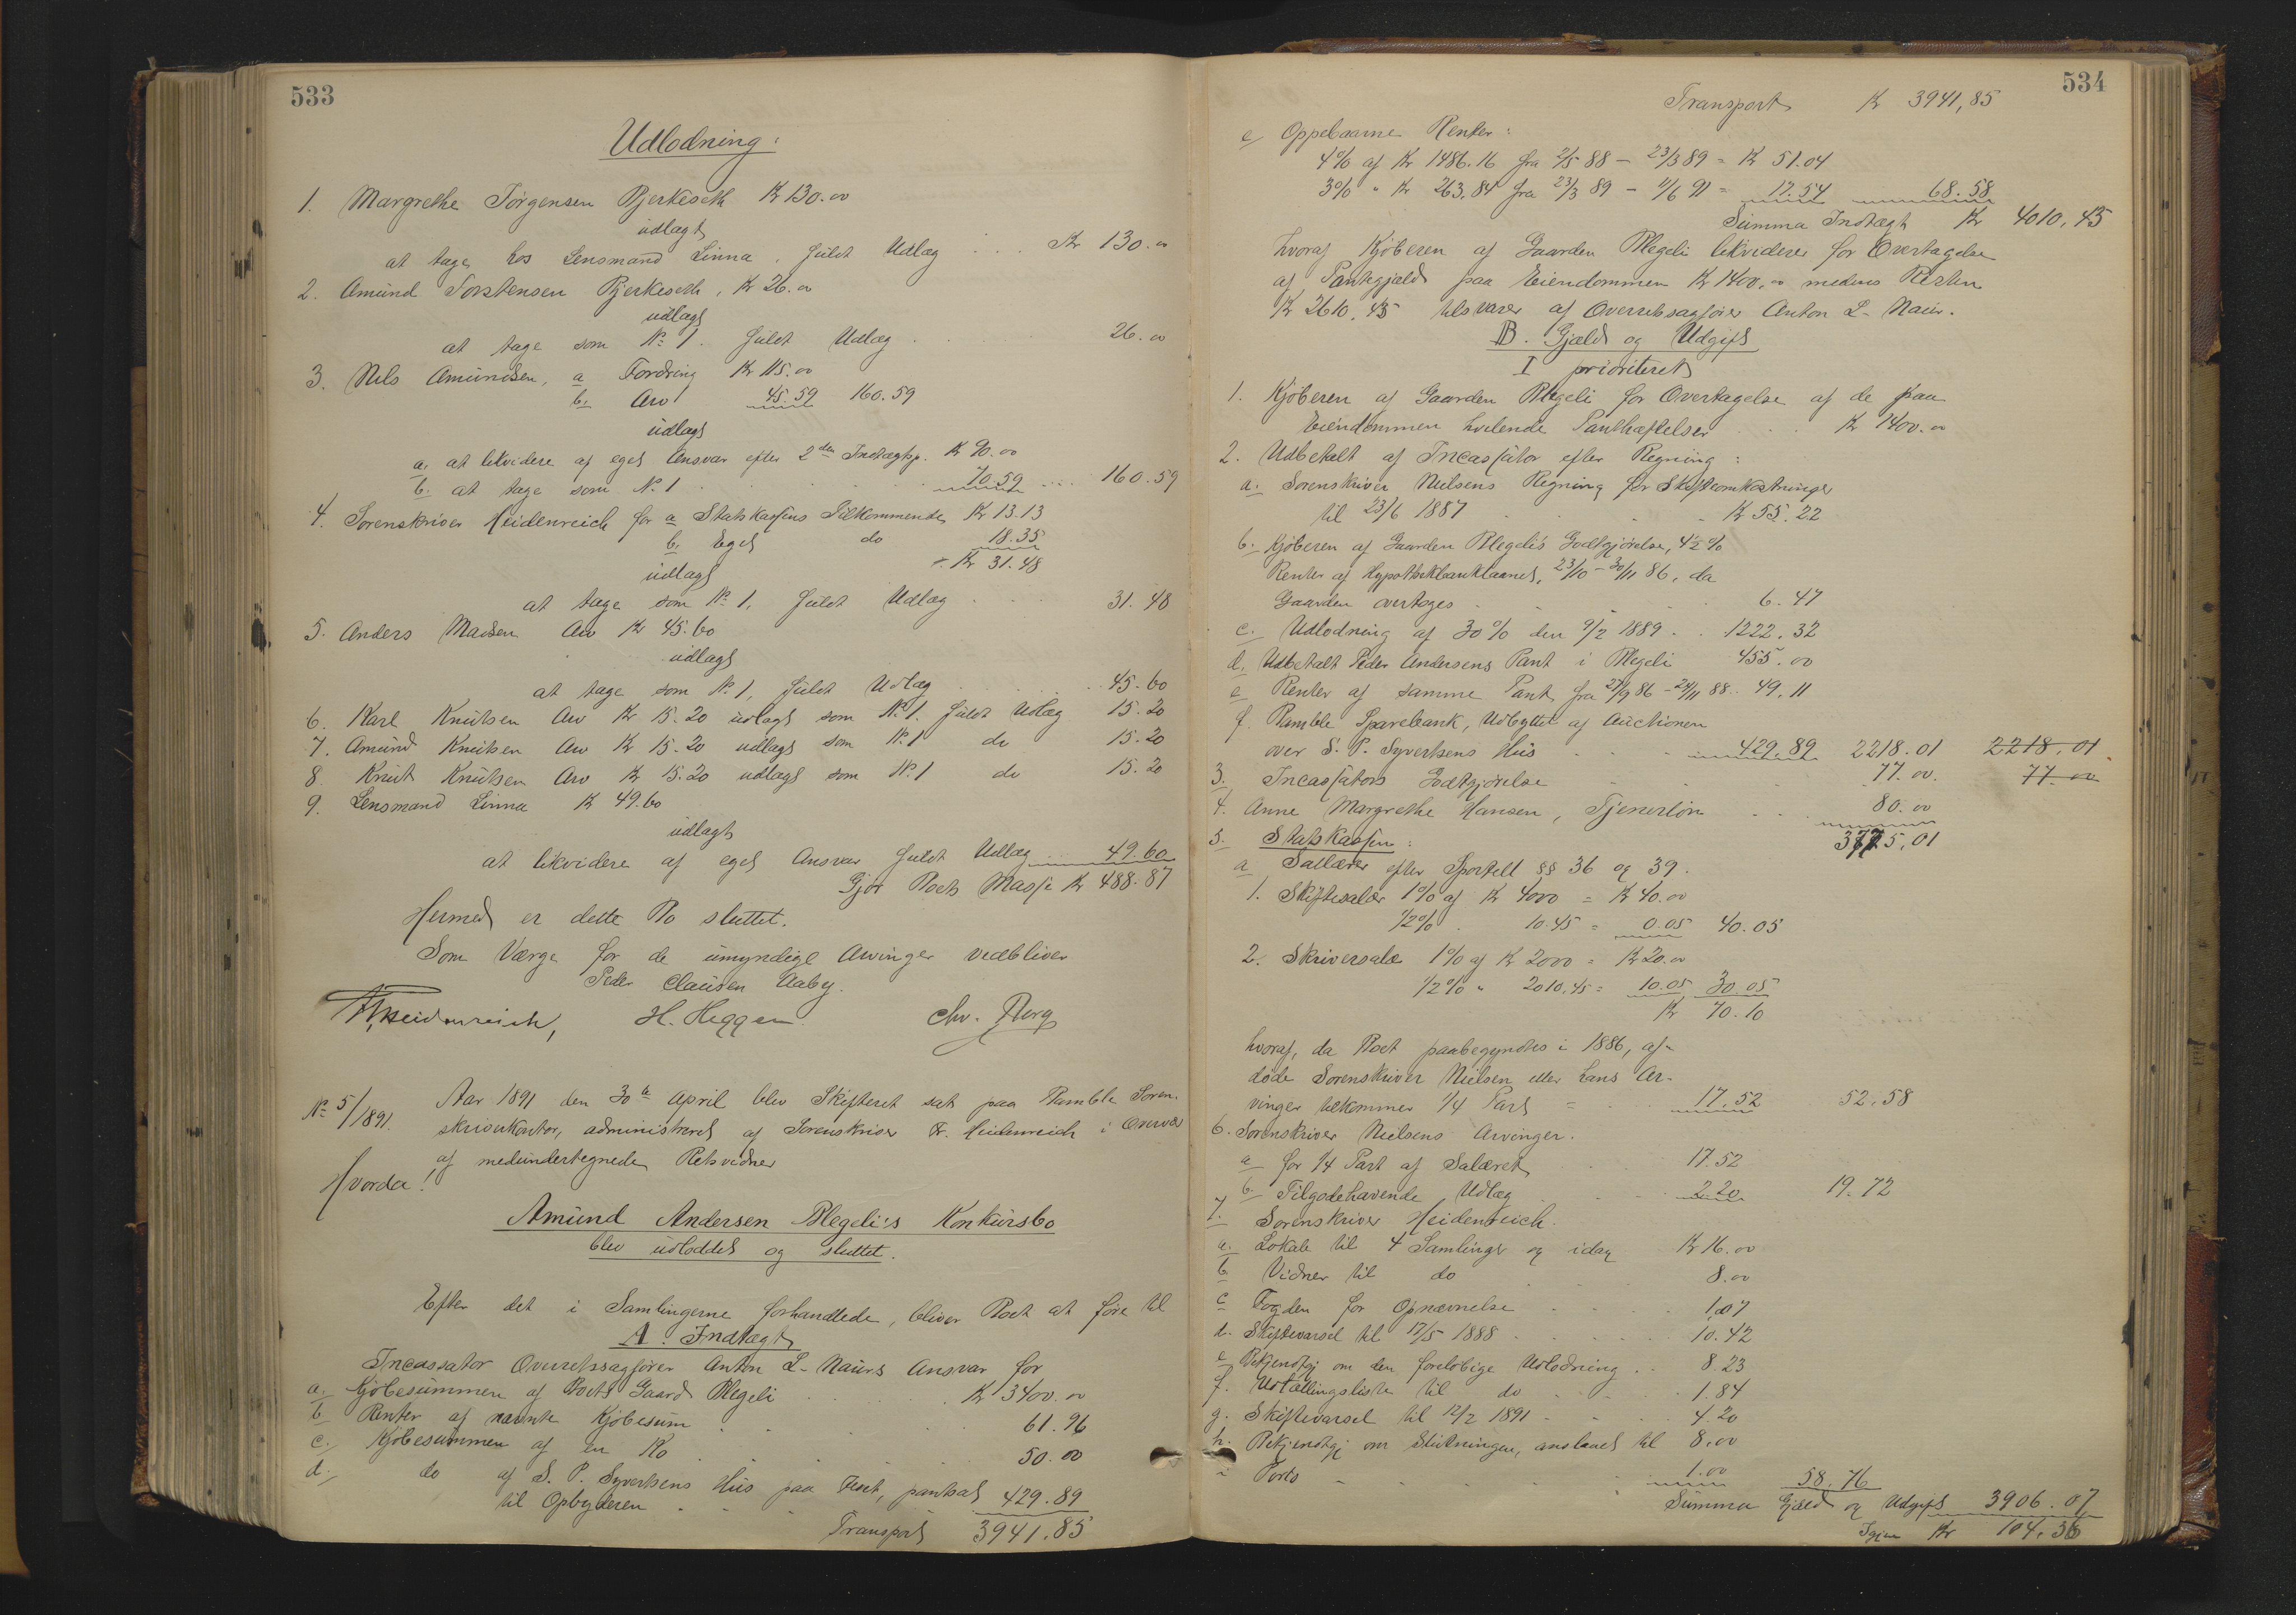 533
Udlodning:
1. Margrethe Jørgensen Bjerkeseth Kr 130.00
udlagt
at tage hos Lensmand Linna. fuldt Udlæg ... Kr 130.00
2. Amund Torstensen Bjerkeseth, Kr 26.00
udlagt
at tage som No 1. fuldt Udlæg . . . 26.00
3. Nils Amundsen, a Fordring Kr 115.00
b. Arv 45.59 160.59
udlagt
a. at likvidere af eget Ansvar efter 2den Indtægtsp. Kr 90.00
b. at tage som No 1 . . . 70.59 .... 160.59
4. Sorenskriver Heidenreich for a Statskassens Tilkommende Kr 13.13
b. Eget do 18.35
Kr 31.48
udlagt
at tage som No 1. fuldt Udlæg . . . 31.48
5. Anders Madsen Arv Kr 45.60
udlagt
at tage som No 1, fuldt Udlæg . . . 45.60
6. Karl Knutsen Arv Kr 15.20 udlagt som No 1. fuldt Udlæg 15.20
7. Amund Knutsen Arv Kr 15.20 udlagt som No 1 do 15.20
8. Knut Knutsen Arv Kr 15.20 udlagt som No 1 do 15.20
9. Lensmand Linna Kr 49.60
udlagt
at likvidere af eget Ansvar fuldt Udlæg ... 49.60
Gjør Boets Masse Kr 488.87
Hermed er dette Bo sluttet.
Som Værge for de umyndige Arvinger vedbliver
Peder Clausen Aaby.
Heidenreich, H. Heggen. Chr. Berg
No 5/1891. Aar 1891 den 30te April blev Skifteret sat paa Bamble Soren-
skriverkontor, administreret af Sorenskriver Fr. Heidenreich i Overvær
af medundertegnede Retsvidner
Hvorda!
Amund Andersen Blegeli's Konkursbo
blev udloddet og sluttet.
Efter det i Samlingerne forhandlede, bliver Boet at føre til
A. Indtægt
Incassator Overretssagfører Anton L. Naurs Ansvar for
a. Kjøbesummen af Boets Gaard Blegeli . . . Kr 3400.00
b. Renter af nævnte Kjøbesum . . . 61.96
c. Kjøbesummen af en Ko . . . 50.00
d. do af S. P. Syvertsens Hus paa , pantsat
til Opbyderen . . . 429.89
Transport 3941.85
534
Transport Kr 3941,85
e Oppebaarne Renter:
4% af Kr 1486.16 fra 2/5 88 - 23/3 89 = Kr 51.04
3% " Kr 263.84 fra 23/3 89 - 11/6 91 = 17.54 68.58
Summa Indtægt Kr 4010,43
hvoraf Kjøberen af Gaarden Blegeli likviderer for Overtagelse
af Pantegjæld paa Eiendommen Kr 1400.00 medens Resten
Kr 2610,43 tilsvares af Overretssagfører Anton L. Naur.
B. Gjæld og Udgift
I prioriteret
1. Kjøberen af Gaarden Blegeli for Overtagelse af de paa
Eiendommen hvilende Panthæftelser . . . Kr 1400.00
2. Udbetalt af Incassator efter Regning:
a. Sorenskriver Nielsens Regning for Skifteomkostninger
til 23/6 1887 . . . Kr 55.22
b. Kjøberen af Gaarden Blegeli's Godtgjørelse, 4½%
Renter af Hypothekbanklaanet, 23/10 - 30/11 86, da
Gaarden overtoges . . . 6.47
c. Udlodning af 30% den 9/2 1889 . . 1222.32
d. Udbetalt Peder Andersens Pant i Blegeli 455.00
e Renter af samme Pant fra 27/9 86 - 24/11 88 .. 49.11
f. Bamble Sparebank, Udbyttet af Auctionen
over S. P. Syvertsens Hus . . . 429.89 2218.01 2218.01
3. Incassators Godtgjørelse . . . 77.00. 77.00
4. Anne Margrethe Hansen, Tjenerløn . . . 80.00
3775,01
5. Statskassen:
a Sallærer efter Sportell §§ 36 og 39.
1. Skiftesalær 1% af Kr 4000 = Kr 40.00
1/2% . 10.45 = 0.05 40.05
2. Skriversalær 1% af Kr 2000 = Kr 20.00
1/2% " 2010.45 = 10.05 30.05
Kr 70.10
hvoraf, da Boet paabegyndtes i 1886, af-
døde Sorenskriver Nielsen eller hans Ar-
vinger tilkommer 1/4 Part = 17.52 52.58
6. Sorenskriver Nielsens Arvinger.
a for 1/4 Part af Salæret . . . 17.52
b. Tilgodehavende Udlæg . . . 2.20 19.72
7. Sorenskriver Heidenreich.
a. Lokale til 4 Samlinger og idag Kr 16.00
b Vidner til do . . . 8.00
c Fogden for Opnævnelse . . . 1,07
d. Skiftevarsel til 17/5 1888 . . . 10.42
e Bekjendtgj om den foreløbige Udlodning . . 8.23
f. Udtællingsliste til do . . . 1.84
g. Skiftevarsel til 12/2 1891 . . . 4.20
h. Bekjendtgj om Slutningen, anslaaet til 8.00
i Porto . . . 1.00 58.76
Summa Gjæld og Udgift 3906.07
Igjen Kr 104.36